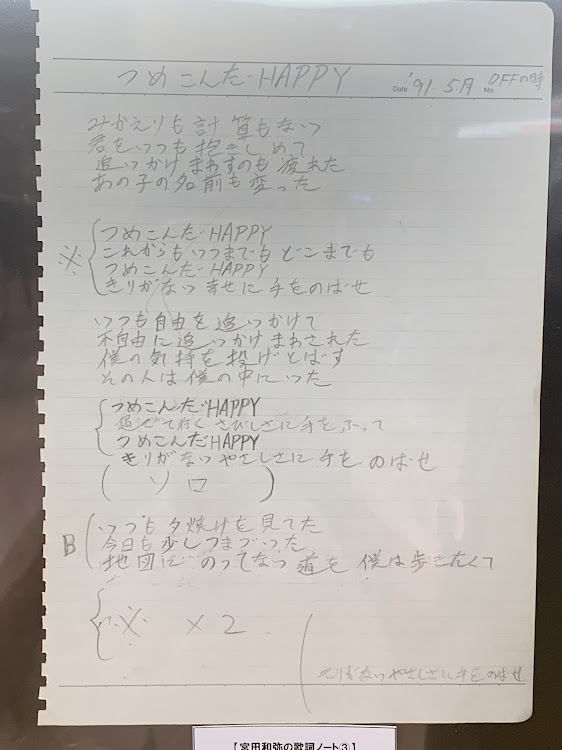 つめこんだHAPPY
Date '91 5月 No. OFFの時
みかえりも計算もない
君をいつも抱きしめて
追いかけまわすのも疲れた
あの子の名前も変った
つめこんだHAPPY
これからもいつまでもどこまでも
※ つめこんだHAPPY
きりがない幸せに手をのばせ
いつも自由を追いかけて
不自由に追いかけまわされた
僕の気持を投げとばす
その人は僕の中にいった
つめこんだHAPPY
過ぎて行くさびしさに手をふって
つめこんだHAPPY
きりがないやさしさに手をのばせ
(ソロ)
いつも夕焼けを見てた
B 今日も少しつまづいた
地図にのってない道を僕は歩きたくて
※ ×2
きりがないやさしさに手をのばせ
【宮田和弥の歌詞ノート③】